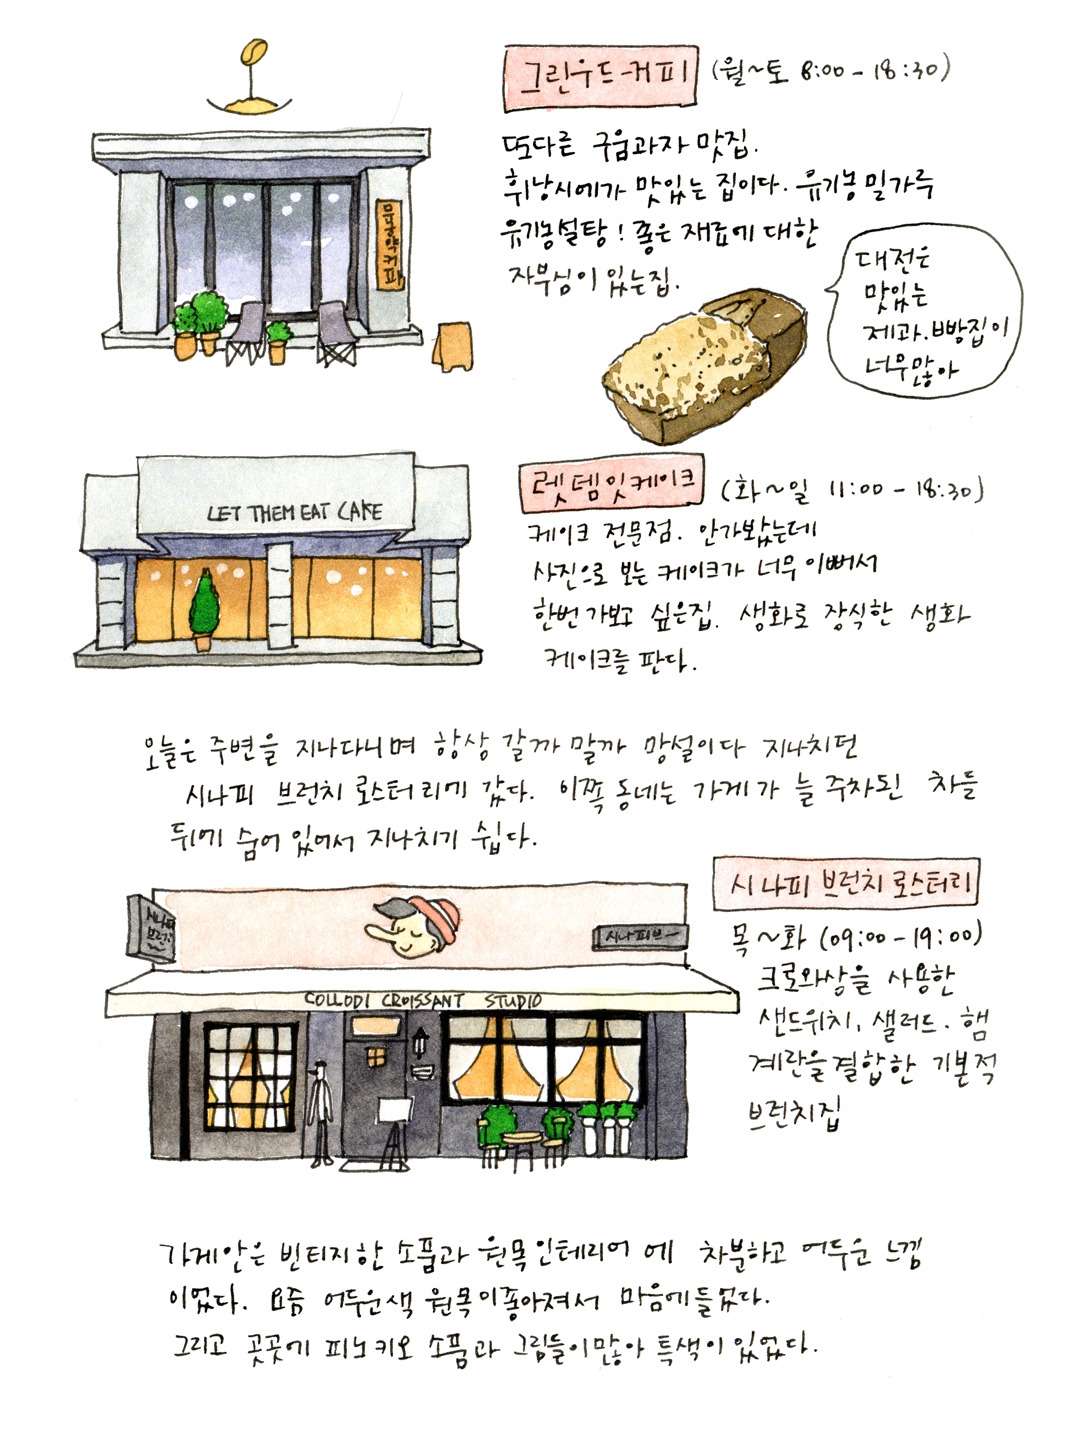 그린우드커피 (월~토 8:00-18:30)
또다른 구움과자 맛집.
휘낭시에가 맛있는 집이다. 유기농 밀가루
유기농설탕! 좋은 재료에 대한
자부심이 있는집.
대전은
맛있는
제과.빵집이
너무많아
렛뎀잇케이크 (화~일 11:00-18:30)
LET THEM EAT CAKE
케이크 전문점. 안가봤는데
사진으로 보는 케이크가 너무 이뻐서
한번 가보고 싶은집. 생화로 장식한 생화
케이크를 판다.
오늘은 주변을 지나다니며 항상 갈까 말까 망설이다 지나치던
시나피 브런치 로스터리에 갔다. 이쪽 동네는 가게가 늘 주차된 차들
뒤에 숨어 있어서 지나치기 쉽다.
시나피 브런치 로스터리
시나피
브런치
시나피브
목~화 (09:00-19:00)
COLLODI CROISSANT STUDIO
크로와상을 사용한
샌드위치, 샐러드. 햄
계란을 결합한 기본적
브런치집
가게안은 빈티지한 소품과 원목인테리어 에 차분하고 어두운 느낌
이었다. 요즘 어두운색 원목이좋아져서 마음에들었다.
그리고 곳곳에 피노키오 소품과 그림들이많아 특색이 있었다.